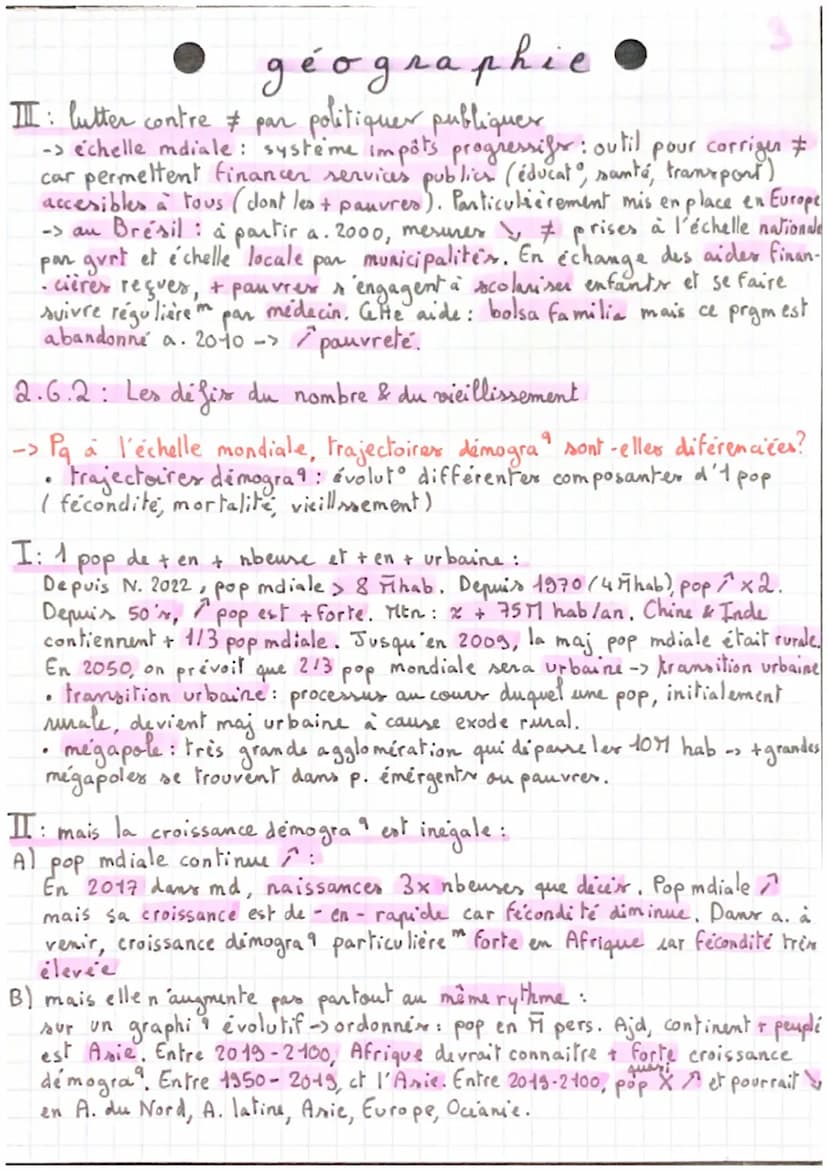 3
géographie
III : lutter contre ≠ par politiques publiques
-> échelle mdiale : système impôts progressifs : outil pour corriger ≠
car permettent financer services publics (éducat°, santé, transport)
accesibles à tous (dont les + pauvres). Particulièrement mis en place en Europe
-> au Brésil : à partir a. 2000, mesures ↘ ≠ prises à l'échelle nationale
par gvrt et échelle locale par municipalités. En échange des aides finan-
-cières reçues, + pauvres s'engagent à scolariser enfants et se faire
suivre régulièreᵐ par médecin. Cette aide : bolsa familia mais ce prgm est
abandonné a. 2010 -> ↗ pauvreté.
2.6.2 : Les défis du nombre & du vieillissement
-> Pq à l'échelle mondiale, trajectoires démograᵠ sont-elles diférenciées?
• trajectoires démograᵠ : évolut° différentes composantes d'1 pop
(fécondité, mortalité, vieillissement)
I : 1 pop de + en + nbeuse et + en + urbaine :
Depuis N. 2022, pop mdiale > 8 M̄ hab. Depuis 1970 (4 M̄ hab), pop ↗ x2.
Depuis 50's, ↗ pop est + forte. Mtn : x + 75M hab/an. Chine & Inde
contiennent + 1/3 pop mdiale. Jusqu'en 2009, la maj pop mdiale était rurale.
En 2050, on prévoit que 2/3 pop mondiale sera urbaine -> transition urbaine
• transition urbaine : processus au cours duquel une pop, initialement
rurale, devient maj urbaine à cause exode rural.
• mégapole : très grande agglomération qui dépasse les 10M hab -> + grandes
mégapoles se trouvent dans p. émergents ou pauvres.
II : mais la croissance démograᵠ est inégale :
A) pop mdiale continue ↗ :
En 2017 dans md, naissances 3x nbeuses que décès. Pop mdiale ↗
mais sa croissance est de - en - rapide car fécondité diminue. Dans a. à
venir, croissance démograᵠ particulièreᵐ forte en Afrique car fécondité très
élevée
B) mais elle n'augmente pas partout au même rythme :
sur un graphiᵠ évolutif -> ordonnées : pop en M̄ pers. Ajd, continent + peuplé
est Asie. Entre 2019-2100, Afrique devrait connaitre + forte croissance
démograᵠ. Entre 1950-2019, ct l'Asie. Entre 2019-2100, pop quasi X ↗ et pourrait ↘
en A. du Nord, A. latine, Asie, Europe, Océanie.